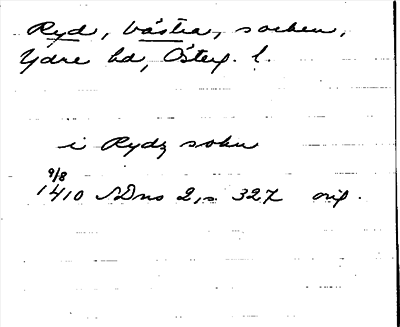 Ryd, Västra, socken,
Ydre hd, Österg. l.
i Rydz sokn
9/8
1410 SDns 2, s. 327 orig.